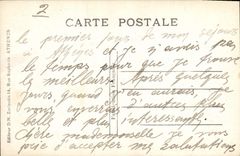 2
CARTE POSTALE
le premier jour de mon séjour
à Athènes et je n'avais pas
le temps pour que je trouve
la meilleure. Après quelques
jours, quand j'en aurai je
vous enverrai d'autres plus
belles et plus intéressants.
Chère mademoiselle je vous
prie d'accepter mes salutations